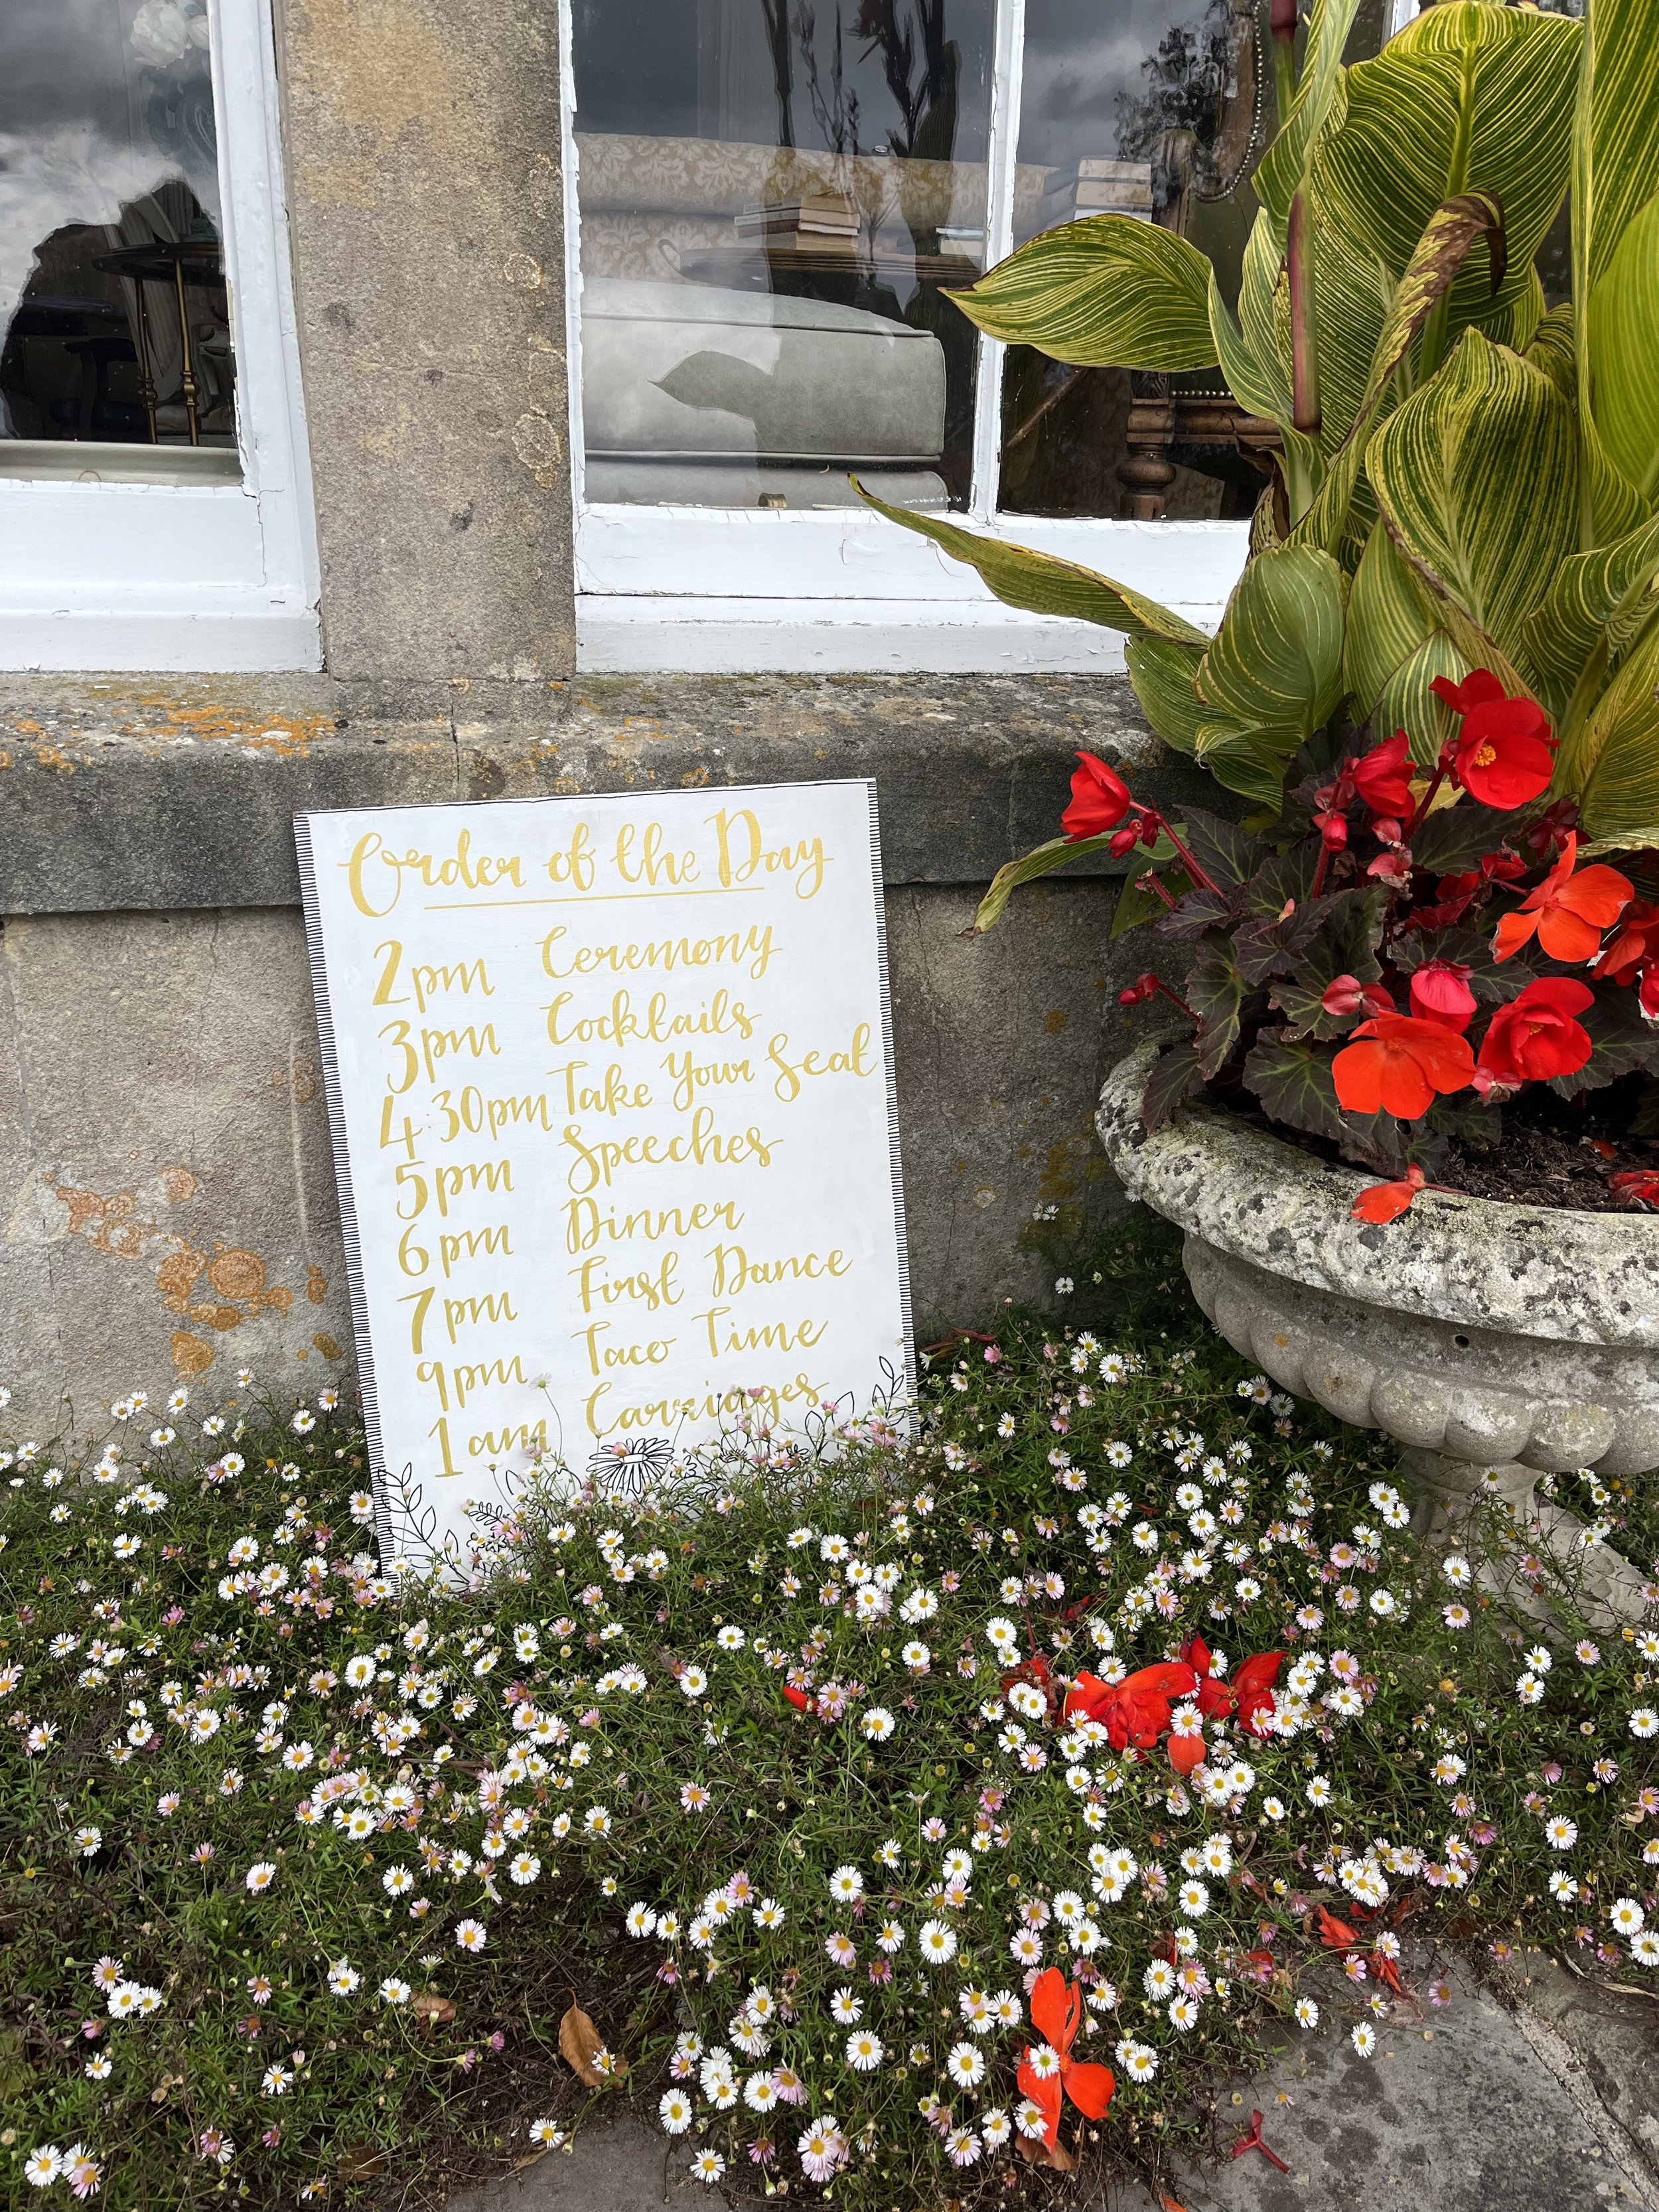 Order of the Day
2pm Ceremony
3pm Cocktails
4:30pm Take Your Seat
5pm Speeches
6pm Dinner
7pm First Dance
9pm Taco Time
1am Carriages